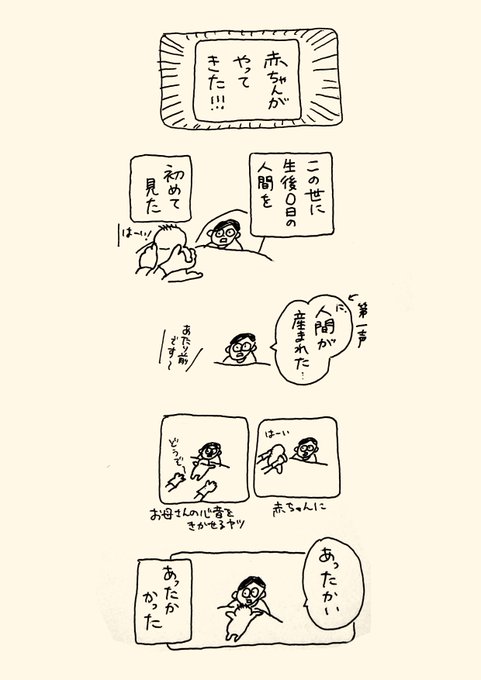 赤ちゃんが
やって
きた!!!
この世に
生後0日の
人間を
初めて
見た
はーい!
第一声
に、
人間が
産まれた…
あたり前
です〜
赤ちゃんに
はーい
お母さんの心音を
きかせるヤツ
どうぞ〜
あったかい
あったか
かった